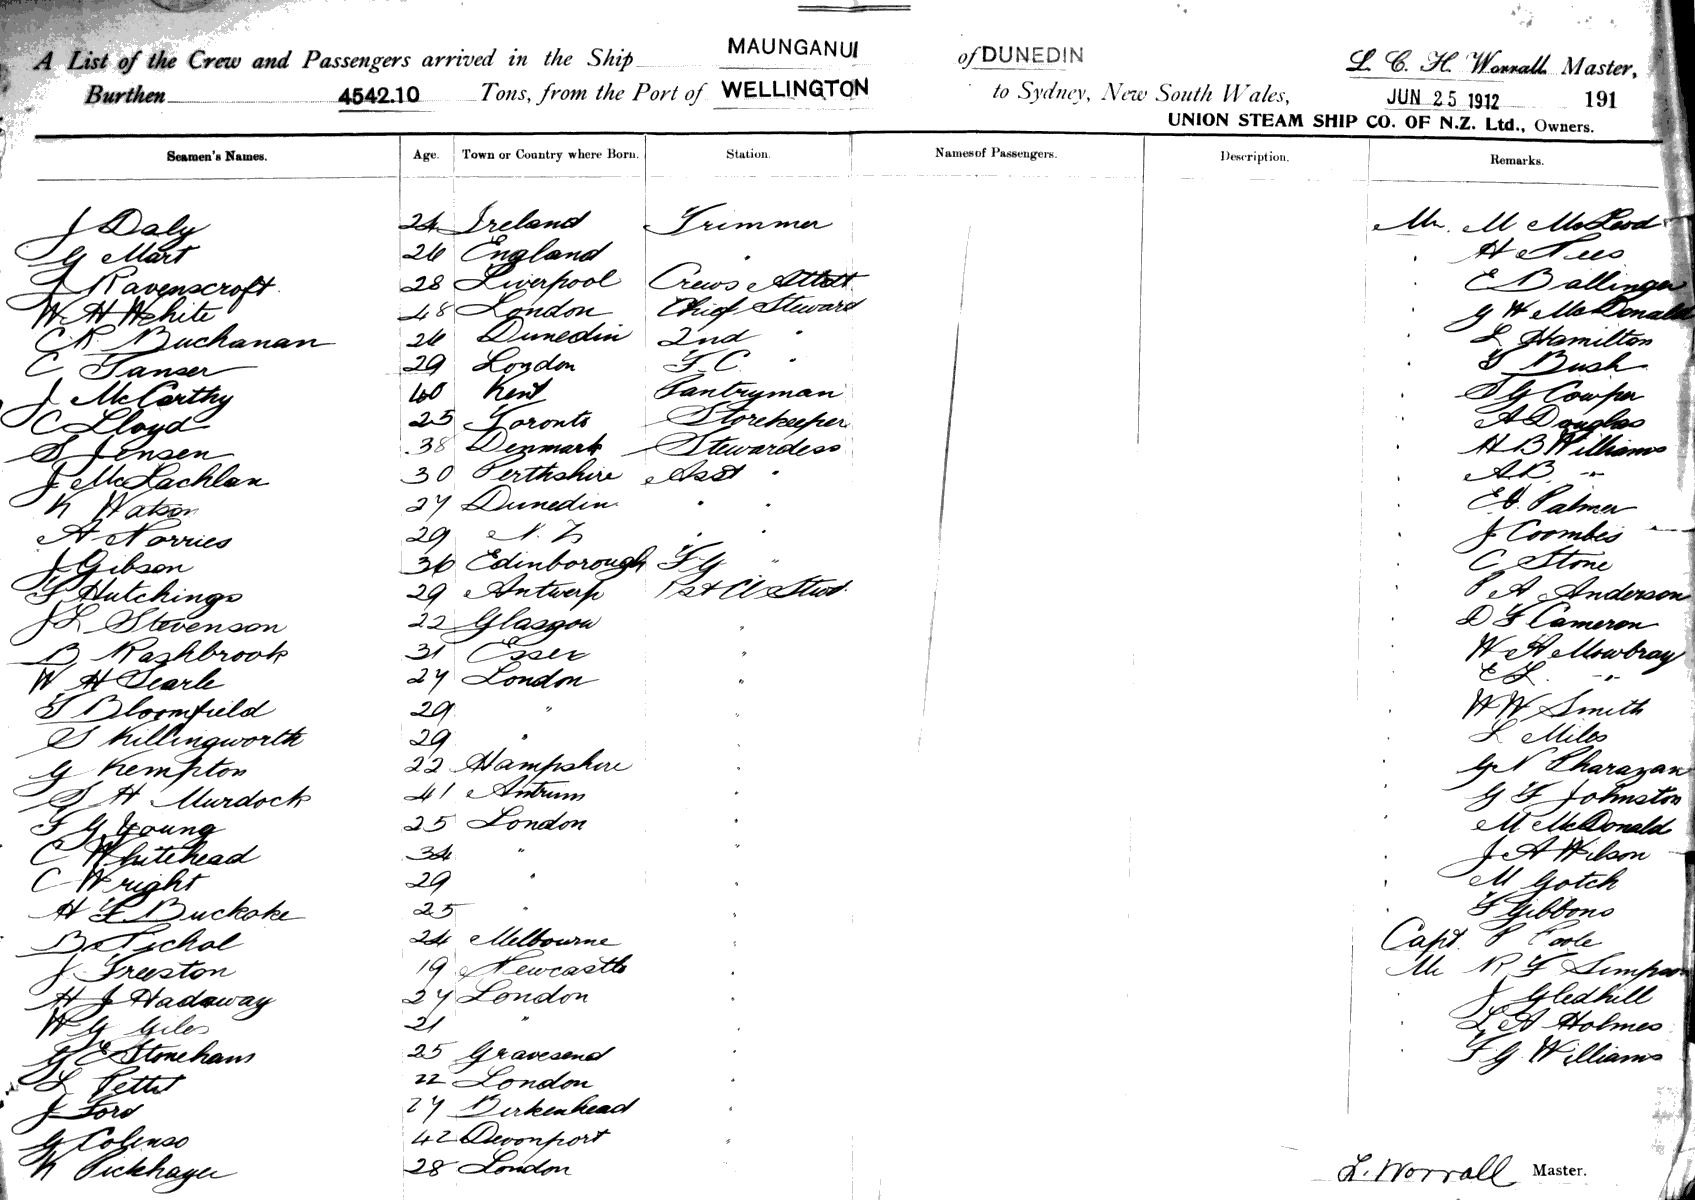 A List of the Crew and Passengers arrived in the Ship MAUNGANUI of DUNEDIN L. C. H. Worrall Master,
Burthen 4542.10 Tons, from the Port of WELLINGTON to Sydney, New South Wales, JUN 25 1912 191
UNION STEAM SHIP CO. OF N.Z. Ltd., Owners.
Seamen's Names. Age. Town or Country where Born. Station. Names of Passengers. Description. Remarks.
J Daly 24 Ireland Trimmer Mr. M McLeod
G Mart 26 England " " H Nees
J Ravenscroft 28 Liverpool Crews Attdt " E Ballinger
W H White 48 London Chief Steward " G W McDonald
C R Buchanan 26 Dunedin 2nd " " L Hamilton
C Tanser 29 London F.C. " " T Bush
J McCarthy 40 Kent Pantryman " S G Cowper
C Lloyd 25 Toronto Storekeeper " A Douglas
S Jensen 38 Denmark Stewardess " H B Williams
J McLachlan 30 Perthshire Asst " " A B "
K Watson 27 Dunedin " " " Palmer
A Norries 29 N. Z " " " J Coombes
J Gibson 36 Edinborough F G " " C Stone
F Hutchings 29 Antwerp 1st Cl Stwd. " P A Anderson
J L Stevenson 22 Glasgow " " D F Cameron
B Rashbrook 31 Essex " " W A Mowbray
W H Searle 27 London " " E L "
T Bloomfield 29 " " " W W Smith
S Killingworth 29 " " " L Miles
G Kempton 22 Hampshire " " G N Pharazan
S H Murdock 41 Antrim " " G F Johnston
F G Young 25 London " " M McDonald
C Whitehead 34 " " " J A Wilson
C Wright 29 " " " M Gotch
H F Buckoke 25 " " " F Gibbons
B Tichol 24 Melbourne " Capt. P Poole
J Freeston 19 Newcastle " Mr R F Simpson
H J Hadaway 27 London " " J Gledhill
W G Giles 21 " " " L A Holmes
G E Stonehans 25 Gravesend " " F G Williams
L Pettit 22 London "
J Ford 27 Birkenhead "
G Colenso 42 Devonport "
K 28 London
L. Worrall Master.